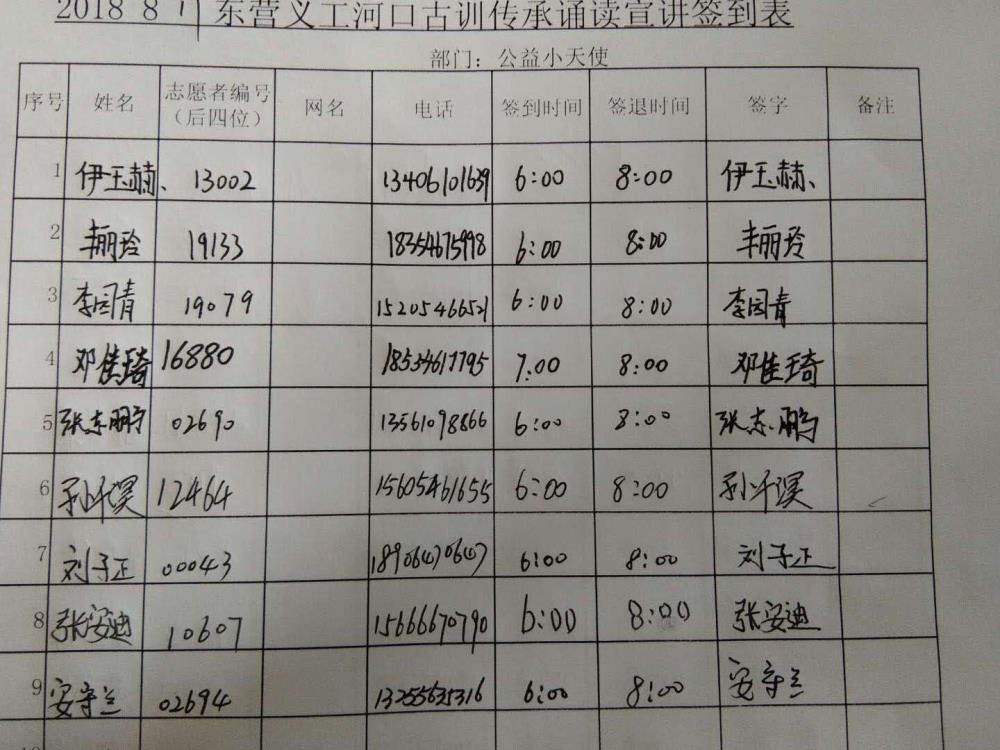 2018 8 11 东营义工河口古训传承诵读宣讲签到表
部门：公益小天使
序号 姓名 志愿者编号（后四位） 网名 电话 签到时间 签退时间 签字 备注
1 伊玉赫、 13002 13406101639 6:00 8:00 伊玉赫、
2 丰丽玲 19133 18354675998 6:00 8:00 丰丽玲
3 李园青 19079 15205466521 6:00 8:00 李园青
4 邓佳琦 16880 18534617795 7:00 8:00 邓佳琦
5 张志鹏 02690 13561098866 6:00 8:00 张志鹏
6 孙汗淏 12464 15605461655 6:00 8:00 孙汗淏
7 刘子正 00043 18906470647 6:00 8:00 刘子正
8 张安迪 10607 15666670790 6:00 8:00 张安迪
9 安守兰 02694 13255635316 6:00 8:00 安守兰